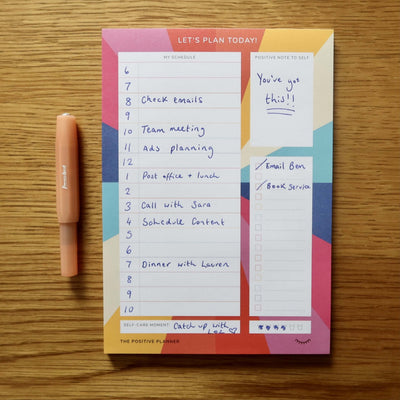 LET'S PLAN TODAY!
MY SCHEDULE
6
7
8 Check emails
9
10 Team meeting
11 Ads planning
12
1 Post office + lunch
2
3 Call with Sara
4 Schedule Content
5
6
7 Dinner with Lauren
8
9
10
SELF-CARE MOMENT! Catch up with
POSITIVE NOTE TO SELF
You've got
this!!
Email Ben
Book Service
THE POSITIVE PLANNER